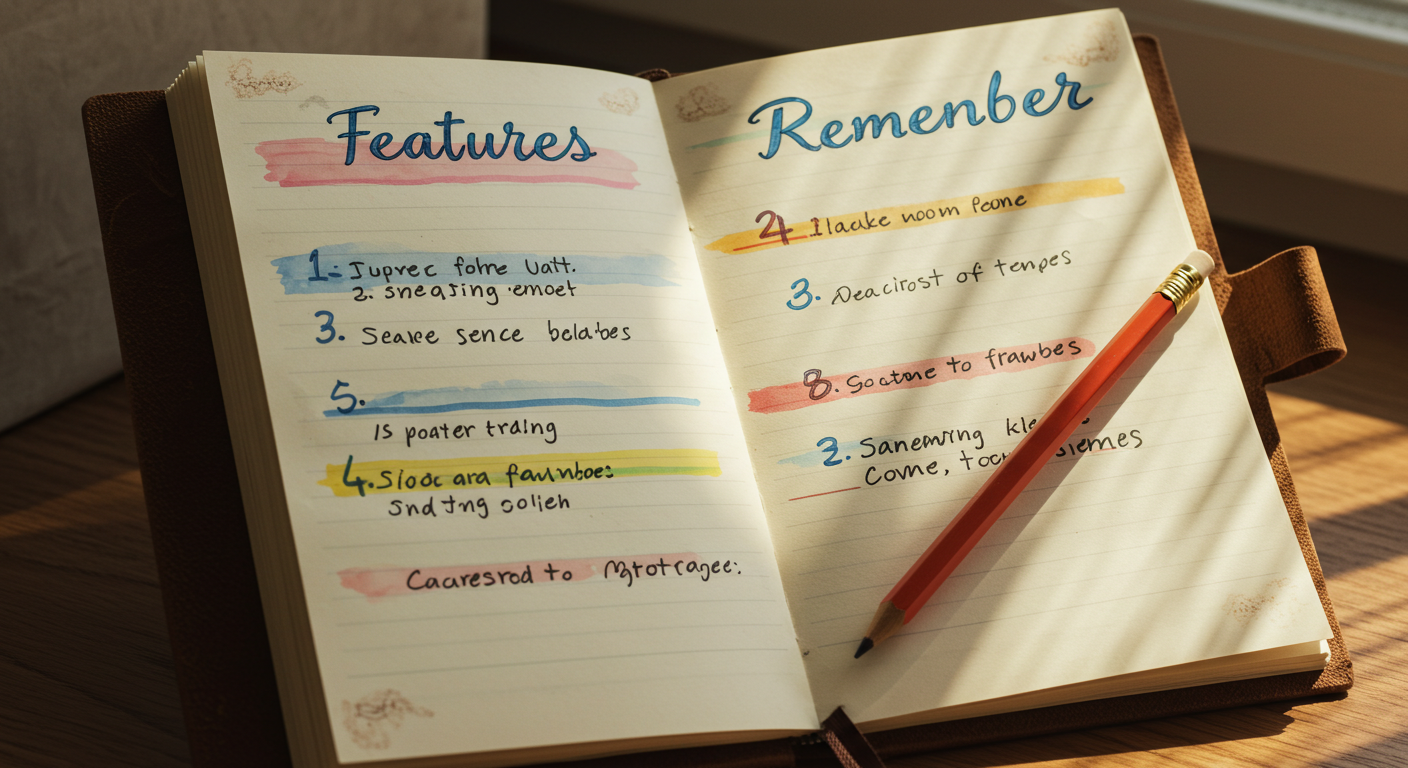 Features
1. Juprec folne Uatt.
2. sneaJing emoet
3. Seake sence belabes
5.
Is poater traling
4. Slodc ara faunboe:
Snd Jng colieh
Caaresrod to
Remenber
2 Ilacke noom Peone
3. Deacirost of tenpes
8. Soctone to frawbes
2. Sanemring
Come,